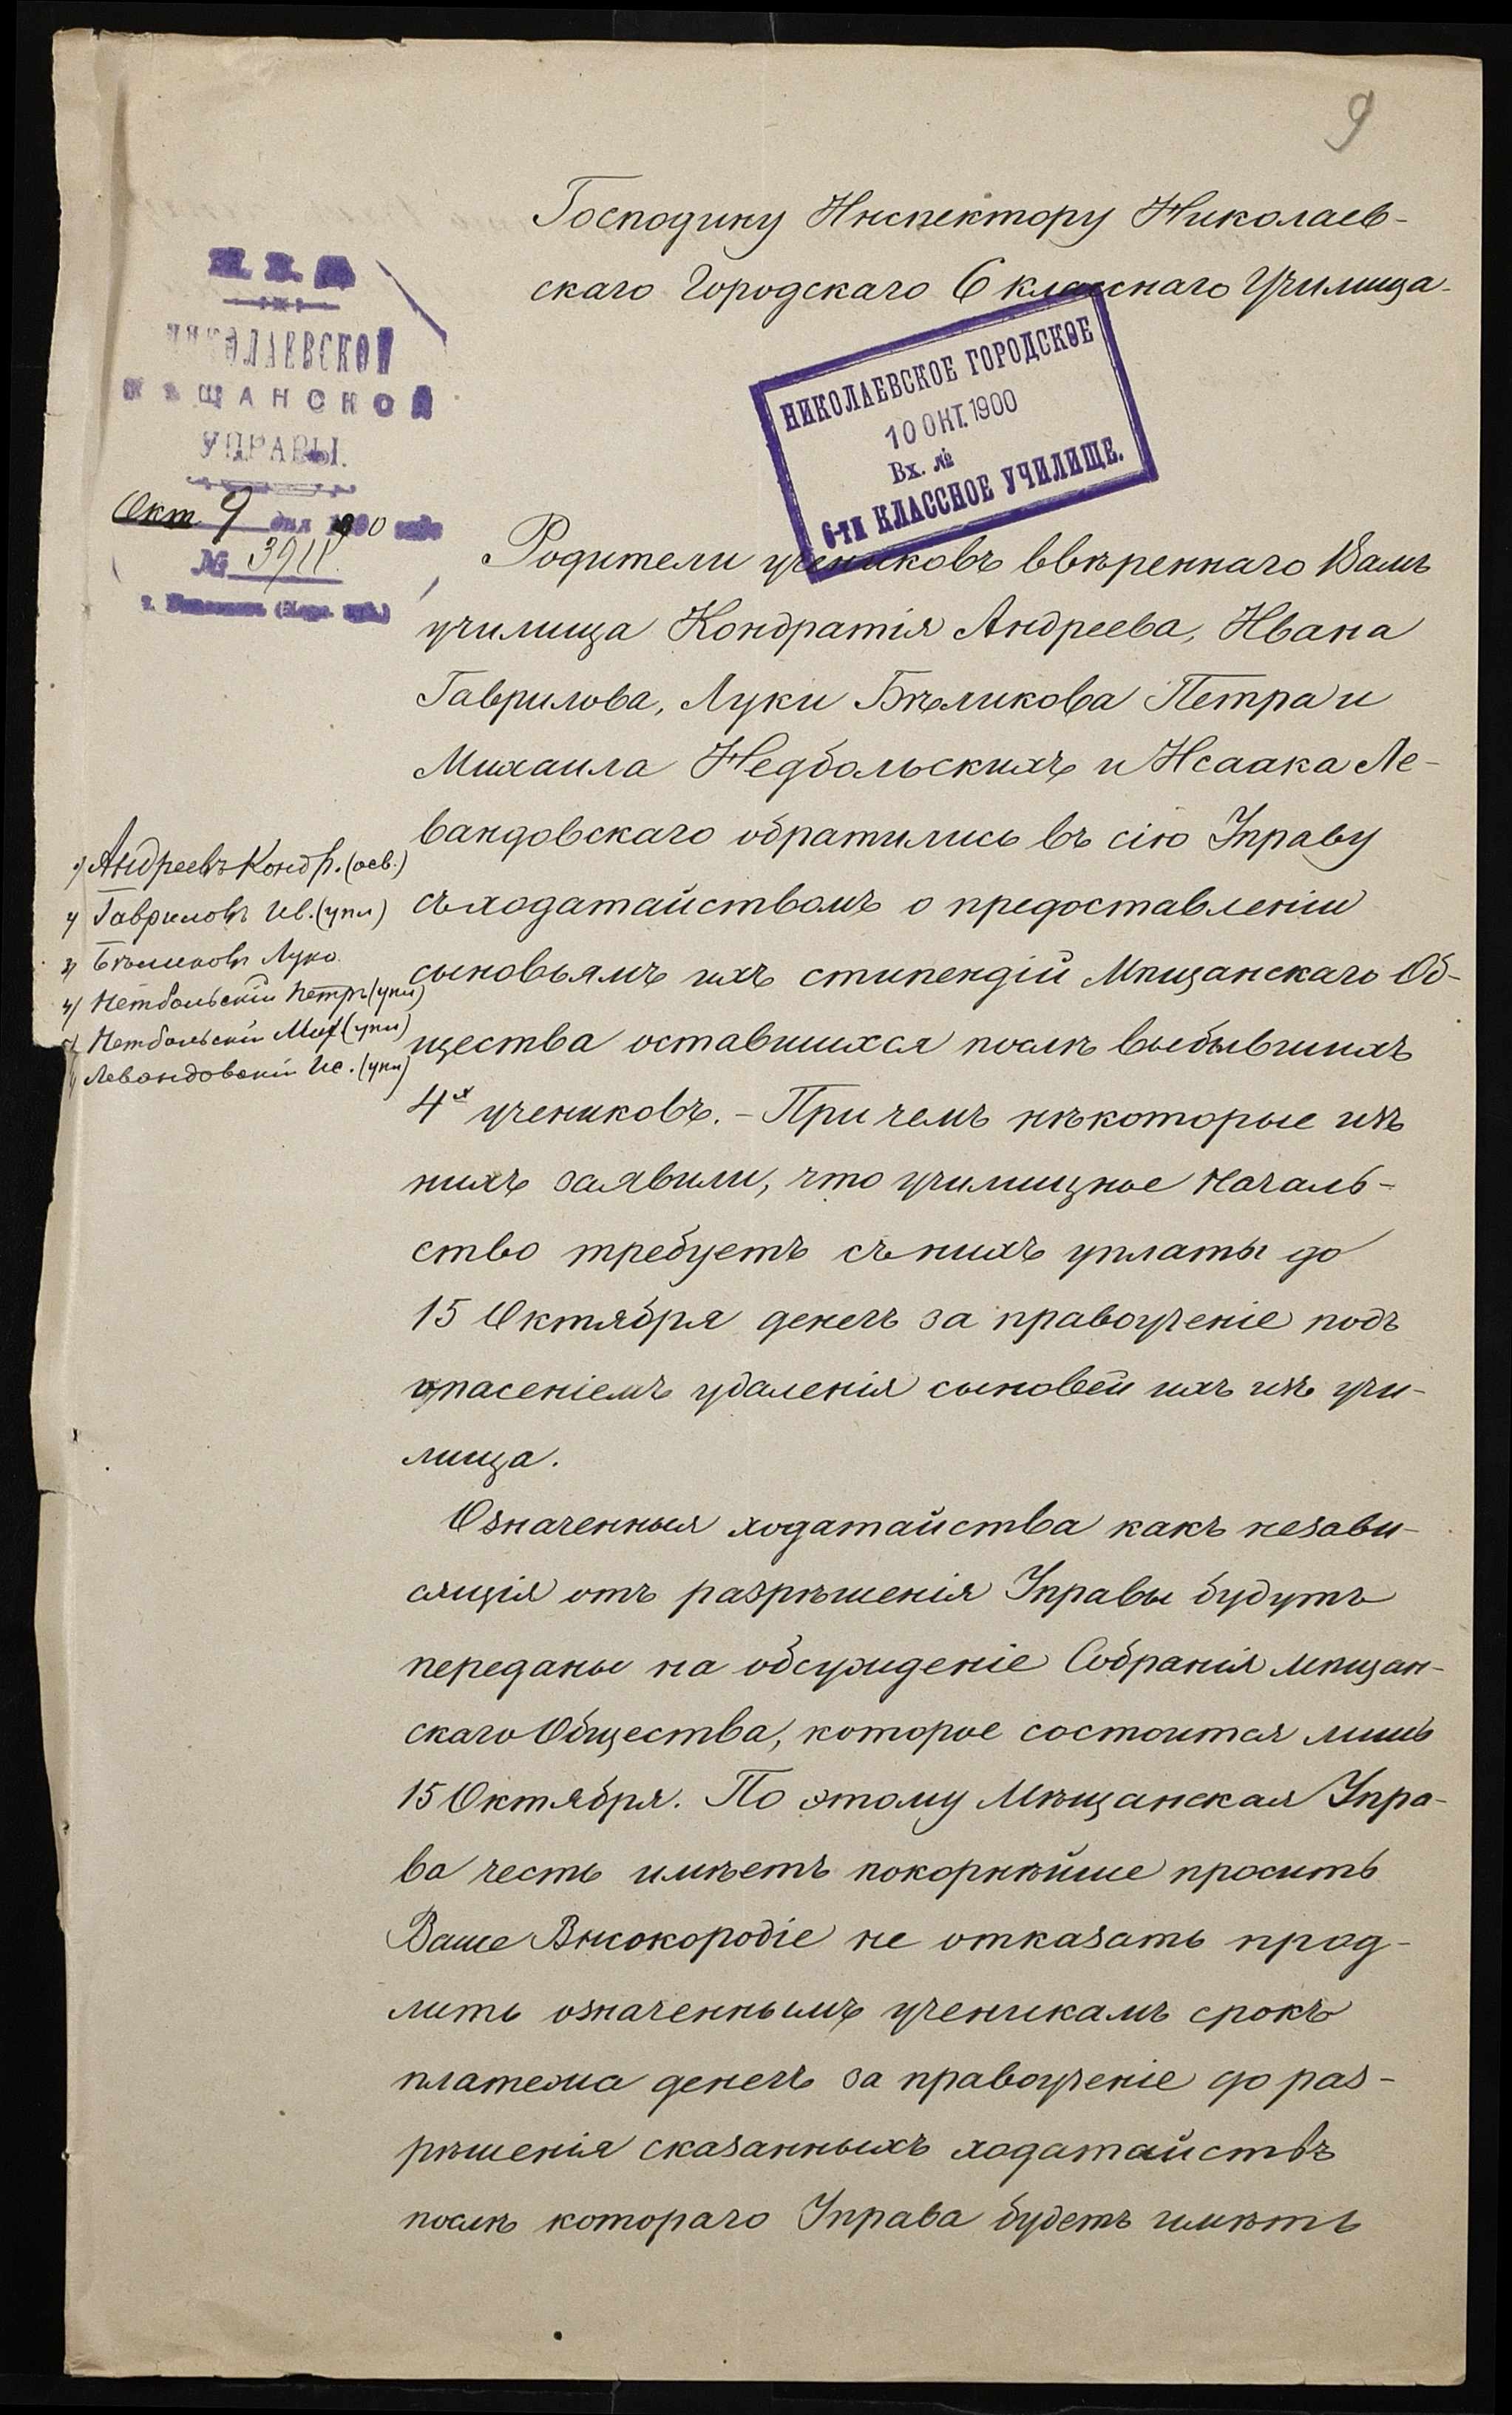 9
Господину Инспектору Николаев-
скаго Городскаго 6 класснаго Училища.
М. В. Д.
НИКОЛАЕВСКОЙ
МѢЩАНСКОЙ
УПРАВЫ.
Окт. 9 дня 1900 года
№ 3911
г. Николаевъ (Херс. губ.)
НИКОЛАЕВСКОЕ ГОРОДСКОЕ
10 ОКТ. 1900
Вх. №
6-ТИ КЛАССНОЕ УЧИЛИЩЕ.
Родители учениковъ ввѣреннаго Вамъ
училища Кондратія Андреева, Ивана
Гаврилова, Луки Бѣликова Петра и
Михаила Недбольскихъ и Исаака Ле-
вандовскаго обратились въ сію Управу
съ ходатайствомъ о предоставленіи
сыновьямъ ихъ стипендій Мѣщанскаго Об-
щества оставшихся послѣ выбывшихъ
4х учениковъ. - При чемъ нѣкоторые изъ
нихъ заявили, что училищное Началь-
ство требуетъ съ нихъ уплаты до
15 Октября денегъ за правоученіе подъ
опасеніемъ удаленія сыновей ихъ изъ учи-
лища.
1) Андреевъ Кондр. (осв.)
2) Гавриловъ Ив. (упл)
3) Бѣликовъ Лука
4) Нетбольскій Петръ (упл)
5) Нетбольскій Мих (упл)
Левандовскій Ис. (упл)
Означенныя ходатайства какъ незави-
сящія отъ разрѣшенія Управы будутъ
переданы на обсужденіе Собранія мѣщан-
скаго Общества, которое состоится лишь
15 Октября. По этому Мѣщанская Упра-
ва честь имѣетъ покорнѣйше просить
Ваше Высокородіе не отказать прод-
лить означеннымъ ученикамъ срокъ
платежа денегъ за правоученіе до раз-
рѣшенія сказанныхъ ходатайствъ
послѣ котораго Управа будетъ имѣть